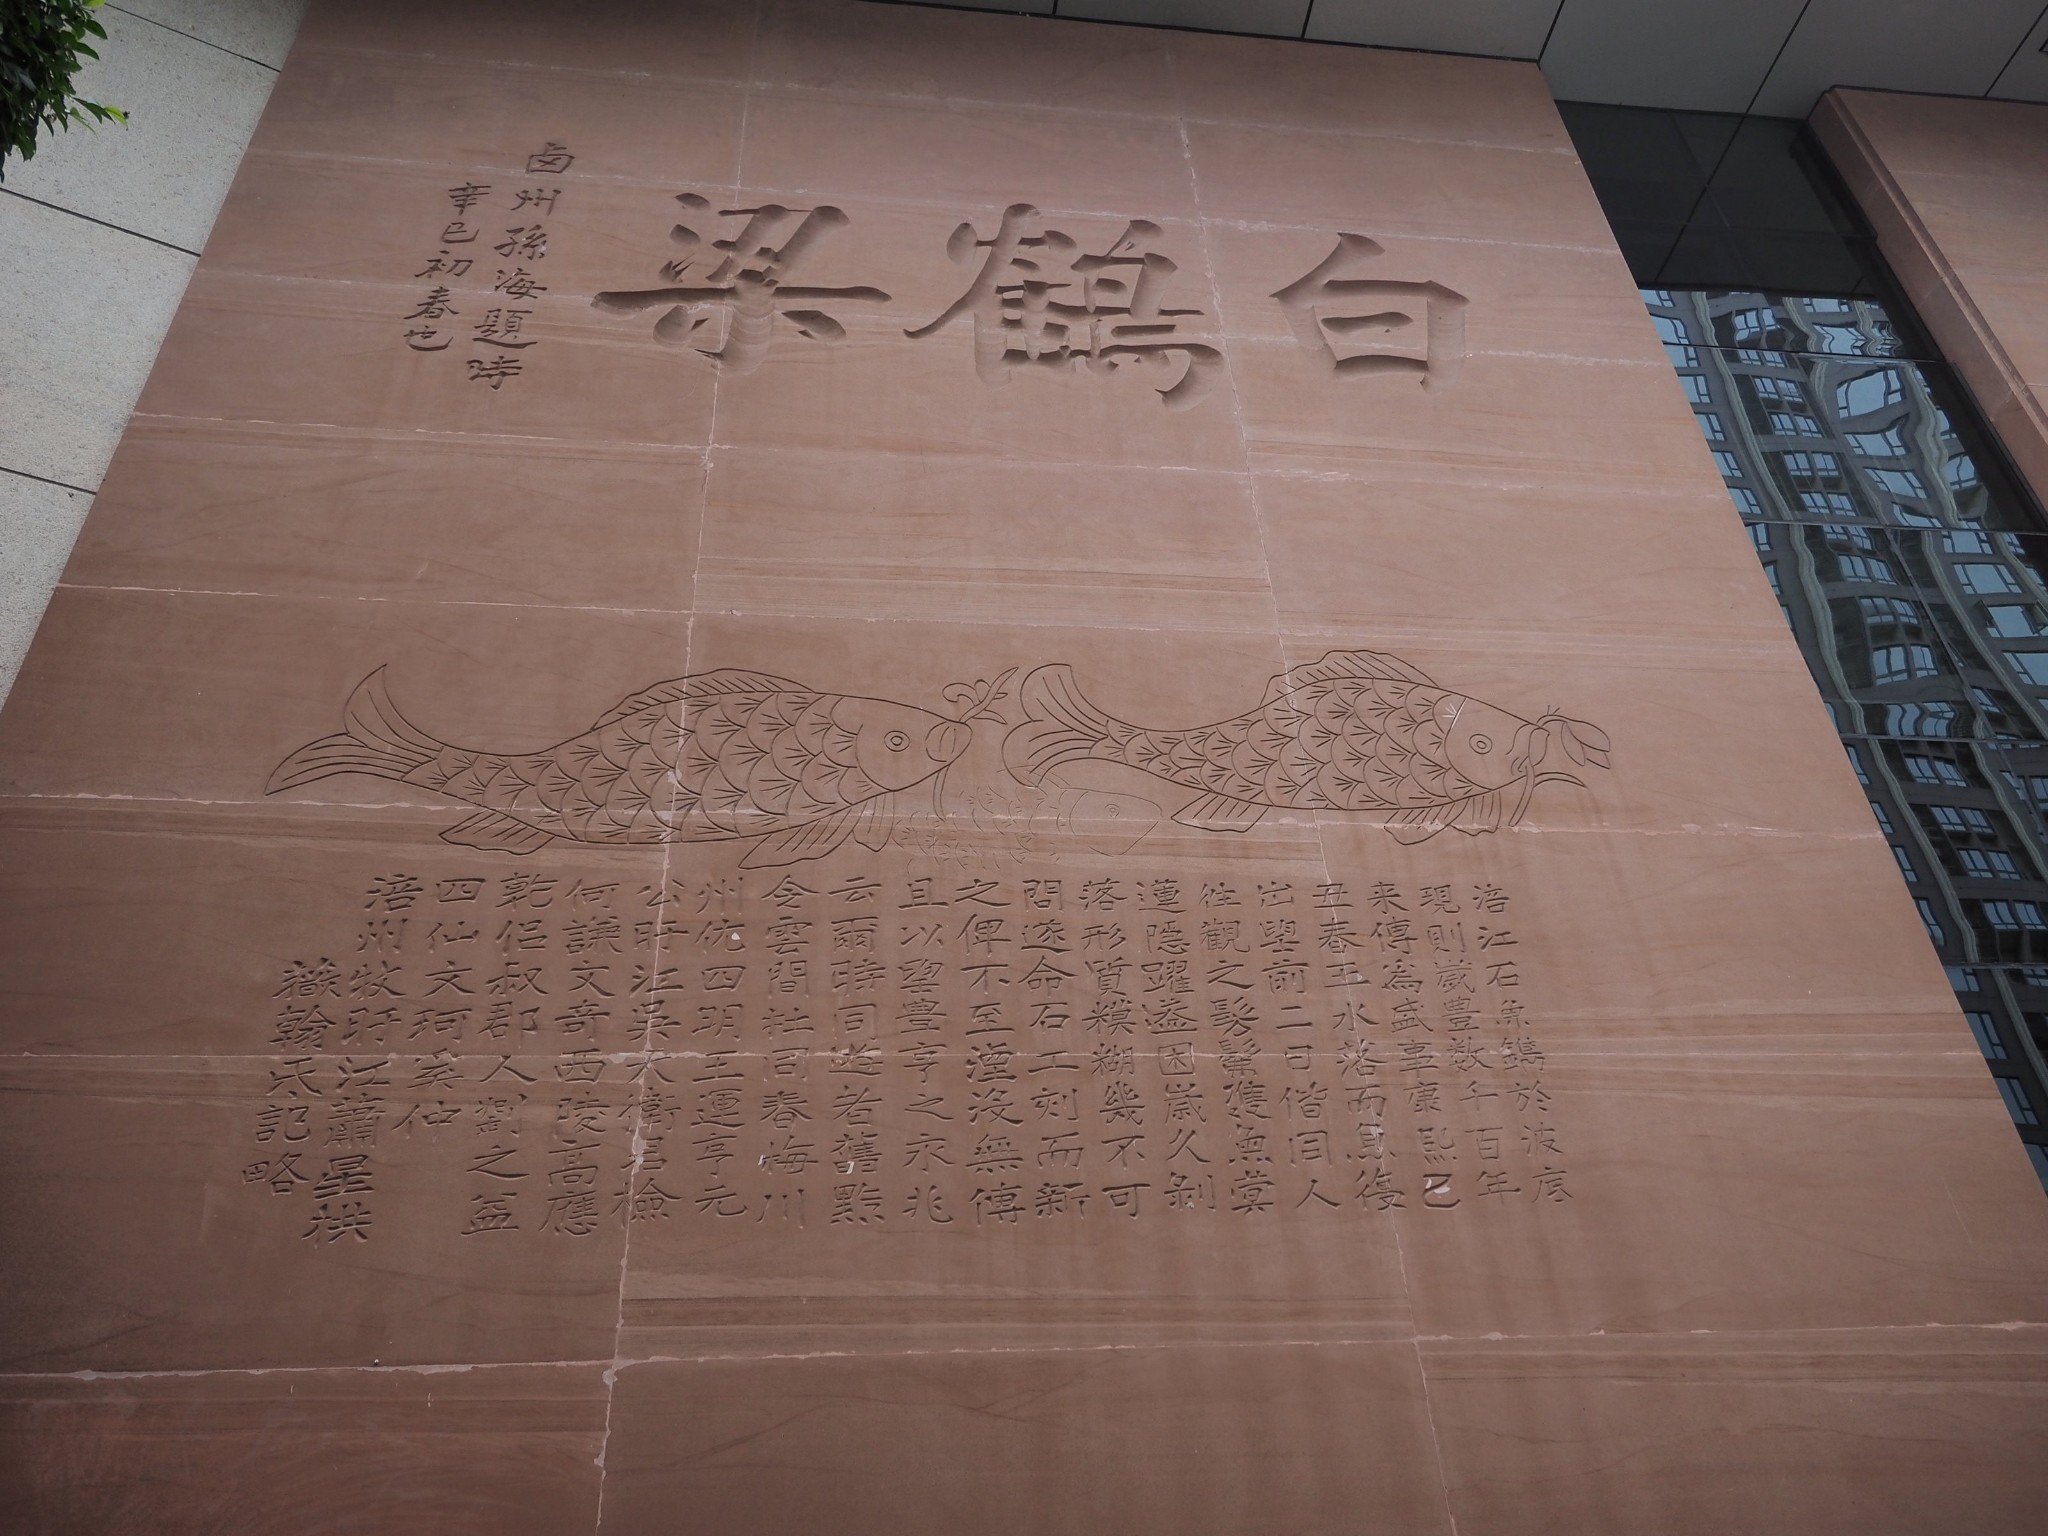 白鶴梁
卣州孫海題時
辛巳初春也
涪江石魚鐫於波底
現則歲豊数千百年
来傳為盛事康熙乙
丑春王水落而魚復
出望前二日偕同人
往觀之髣髴雙魚蓂
蓮隱躍盗因歲久剝
落形質糢糊幾不可
問遂命石工刻而新
之俾不至湮没無傳
且以望豊亨之永兆
云爾時同遊者舊黔
令雲間杜同春梅川
州佐四明王運亨元
公盱江吳天衡君檢
何謙文奇西陵高應
乾侶叔郡人劉之益
四仙文珂奚仲
涪州牧盱江蕭星拱
薇翰氏記略